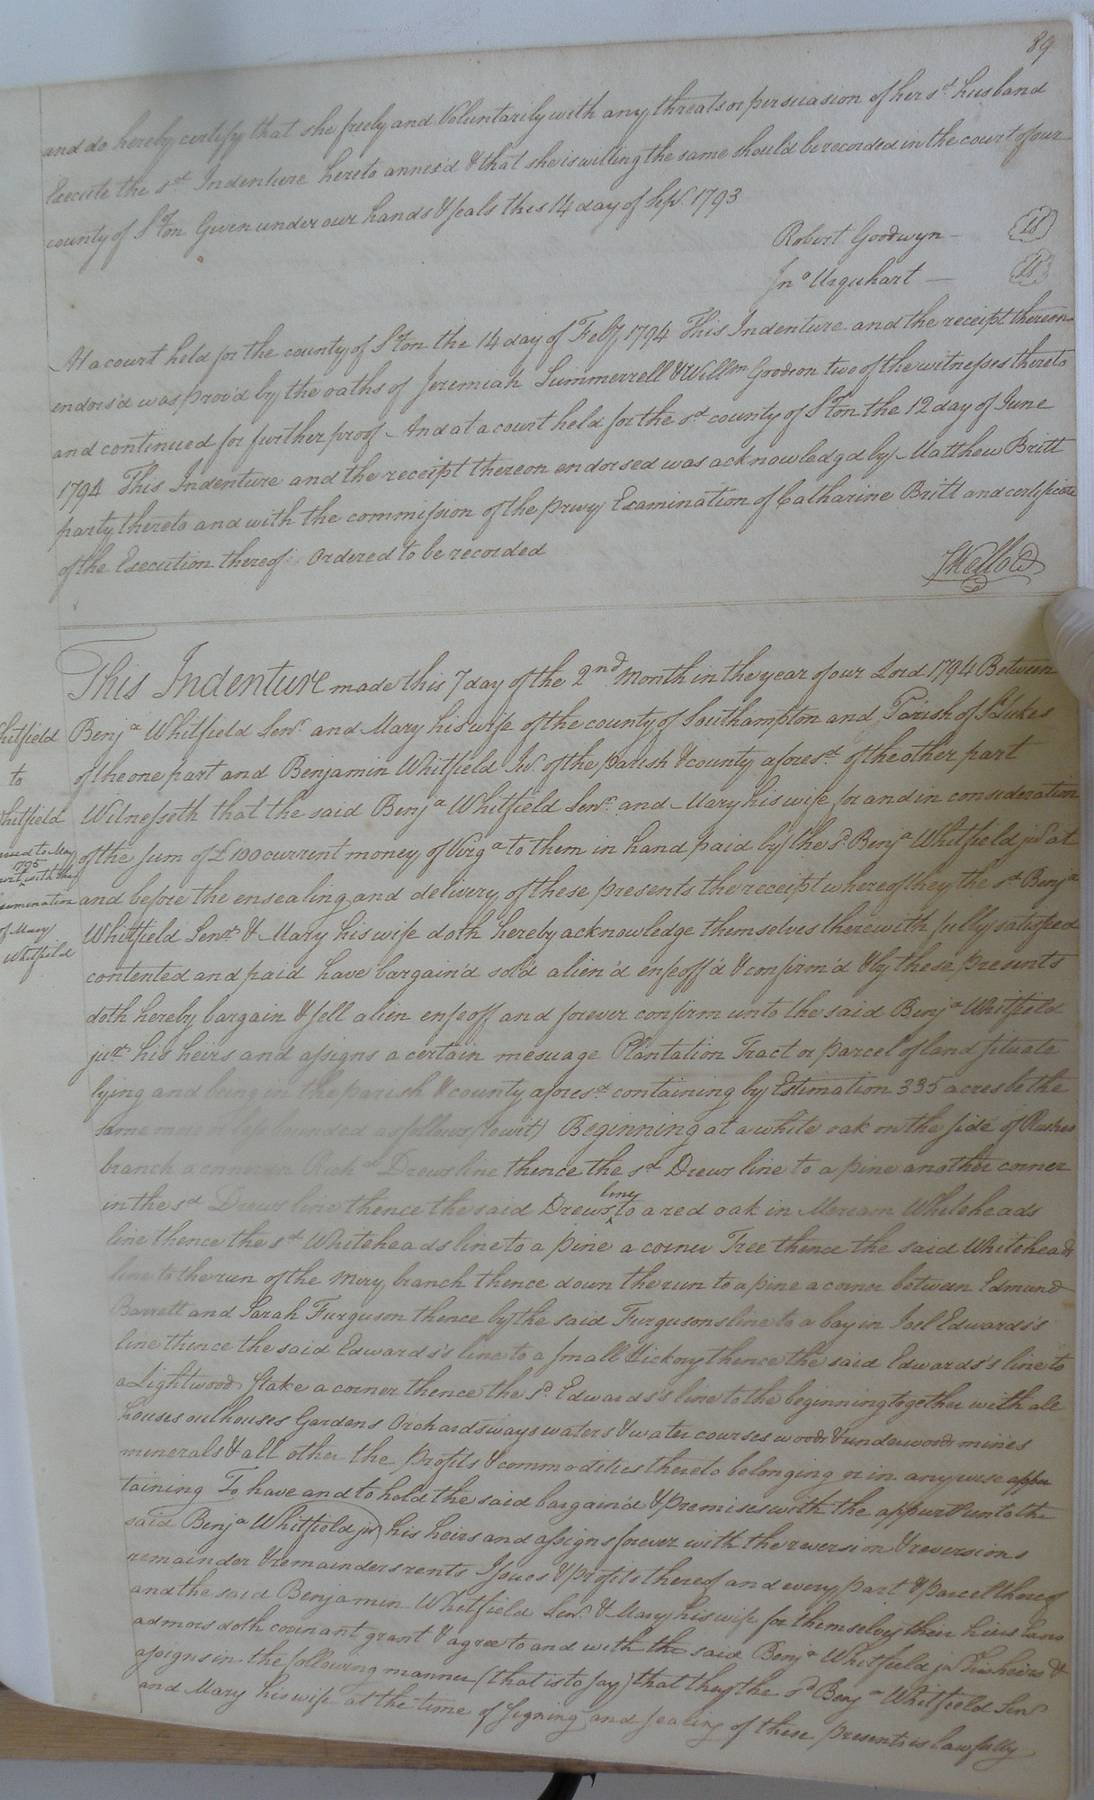 89
and do hereby certify that she freely and Voluntarily with any threats or persuasion of her sd. husband
Execute the sd. Indenture hereto annex'd & that she is willing the same should be recorded in the court of our
county of S°ton Given under our hands & seals this 14 day of Sepr. 1793
Robert Goodwyn — LS
Jno Urquhart — LS
At a court held for the county of S°ton the 14 day of Feby. 1794 This Indenture and the receipt thereon
endors'd was prov'd by the oaths of Jeremiah Summerrell & Willm Goodson two of the witnesses thereto
and continued for further proof - And at a court held for the sd county of S°ton the 12 day of June
1794 This Indenture and the receipt thereon endorsed was acknowledgd by Matthew Britt
party thereto and with the commission of the privy Examination of Catharine Britt and certificate
of the Execution thereof Ordered to be recorded
This Indenture made this 7 day of the 2nd Month in the year of our Lord 1794 Between
Benja Whitfield Senr. and Mary his wife of the county of Southampton and Parish of St Lukes
of the one part and Benjamin Whitfield Jur. of the parish & county aforesd. of the other part
Witnesseth that the said Benja Whitfield Senr. and Mary his wife for and in consideration
of the sum of £100 current money of Virga to them in hand paid by the sd. Benja Whitfield jur at
and before the ensealing and delivery of these presents the receipt whereof they the sd Benja
Whitfield Senr. & Mary his wife doth hereby acknowledge themselves therewith fully satisfied
contented and paid have bargain'd sold alien'd enfeoff'd & confirm'd & by these presents
doth hereby bargain & sell alien enfeoff and forever confirm unto the said Benja Whitfield
junr his heirs and assigns a certain mesuage Plantation Tract or parcel of land situate
lying and being in the parish & county aforesd. containing by Estimation 335 acres be the
same more or less bounded as follows (towit) Beginning at a white oak on the side of
branch a corner in Richd Drews line thence the sd Drews line to a pine another corner
in the sd Drews line thence the said Drews line to a red oak in Meream Whiteheads
line thence the sd Whiteheads line to a pine a corner Tree thence the said Whiteheads
line to the run of the Miry branch thence down the run to a pine a corner between Edmund
Barrett and Sarah Furguson thence by the said Furgusons line to a bay in Joel Edwards's
line thence the said Edwards's line to a small Hickory thence the said Edwards's line to
a Lightwood Stake a corner thence the sd. Edwards's line to the beginning together with all
houses outhouses Gardens Orchards ways waters & water courses woods & underwoods mines
minerals & all other the Profits & commodities thereto belonging or in any wise apper
taining To have and to hold the said bargain'd & premises with the appurts unto the
said Benja Whitfield jur his heirs and assigns forever with the reversion & reversions
remainder & remainders rents Issues & profits thereof and every part & parcell thereof
and the said Benjamin Whitfield Senr. & Mary his wife for themselves their heirs
admors doth covinant grant & agree to and with the said Benja Whitfield jur his heirs &
assigns in the following manner (that is to say) that they the sd Benja Whitfield Senr
and Mary his wife at the time of signing and sealing of these presents is lawfully
hitfield
to
hitfield
to May
1795
with the
amination
of Mary
Whitfield